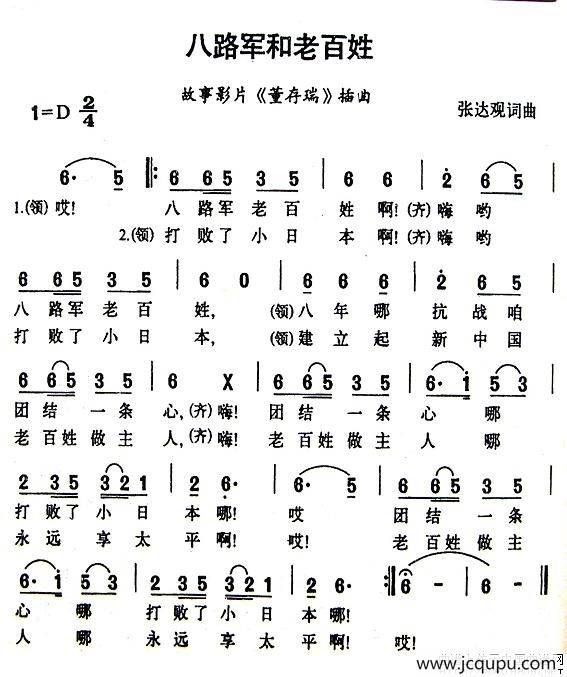 八路军和老百姓
故事影片《董存瑞》插曲
1=D 2/4
张达观词曲
6· 5 𝄆 6 6 5 3 5 | 6 6 | 2 6 5 |
1.(领)哎! 八路军老百 姓啊!(齐)嗨哟
2.(领)打败了小日 本啊!(齐)嗨哟
6 6 5 3 5 | 6 0 | 6 6 6 | 2 6 5 |
八路军老百 姓, (领)八年哪 抗战咱
打败了小日 本, (领)建立起 新中国
6 6 5 3 5 | 6 X | 6 6 5 3 5 | 6· 1 5 3 |
团结一条 心,(齐)嗨! 团结一条 心哪
老百姓做主 人,(齐)嗨! 老百姓做主 人哪
2 3 5 3 2 1 | 2 6· | 6· 5 | 6 6 5 3 5 |
打败了小日 本哪! 哎 团结一条
永远享太 平啊! 哎! 老百姓做主
6· 1 5 3 | 2 3 5 3 2 1 | 2 6· 5 𝄇 6· - | 6 - ‖
心哪 打败了小日 本哪!
人哪 永远享太 平啊! 哎!
www.jcqupu.com